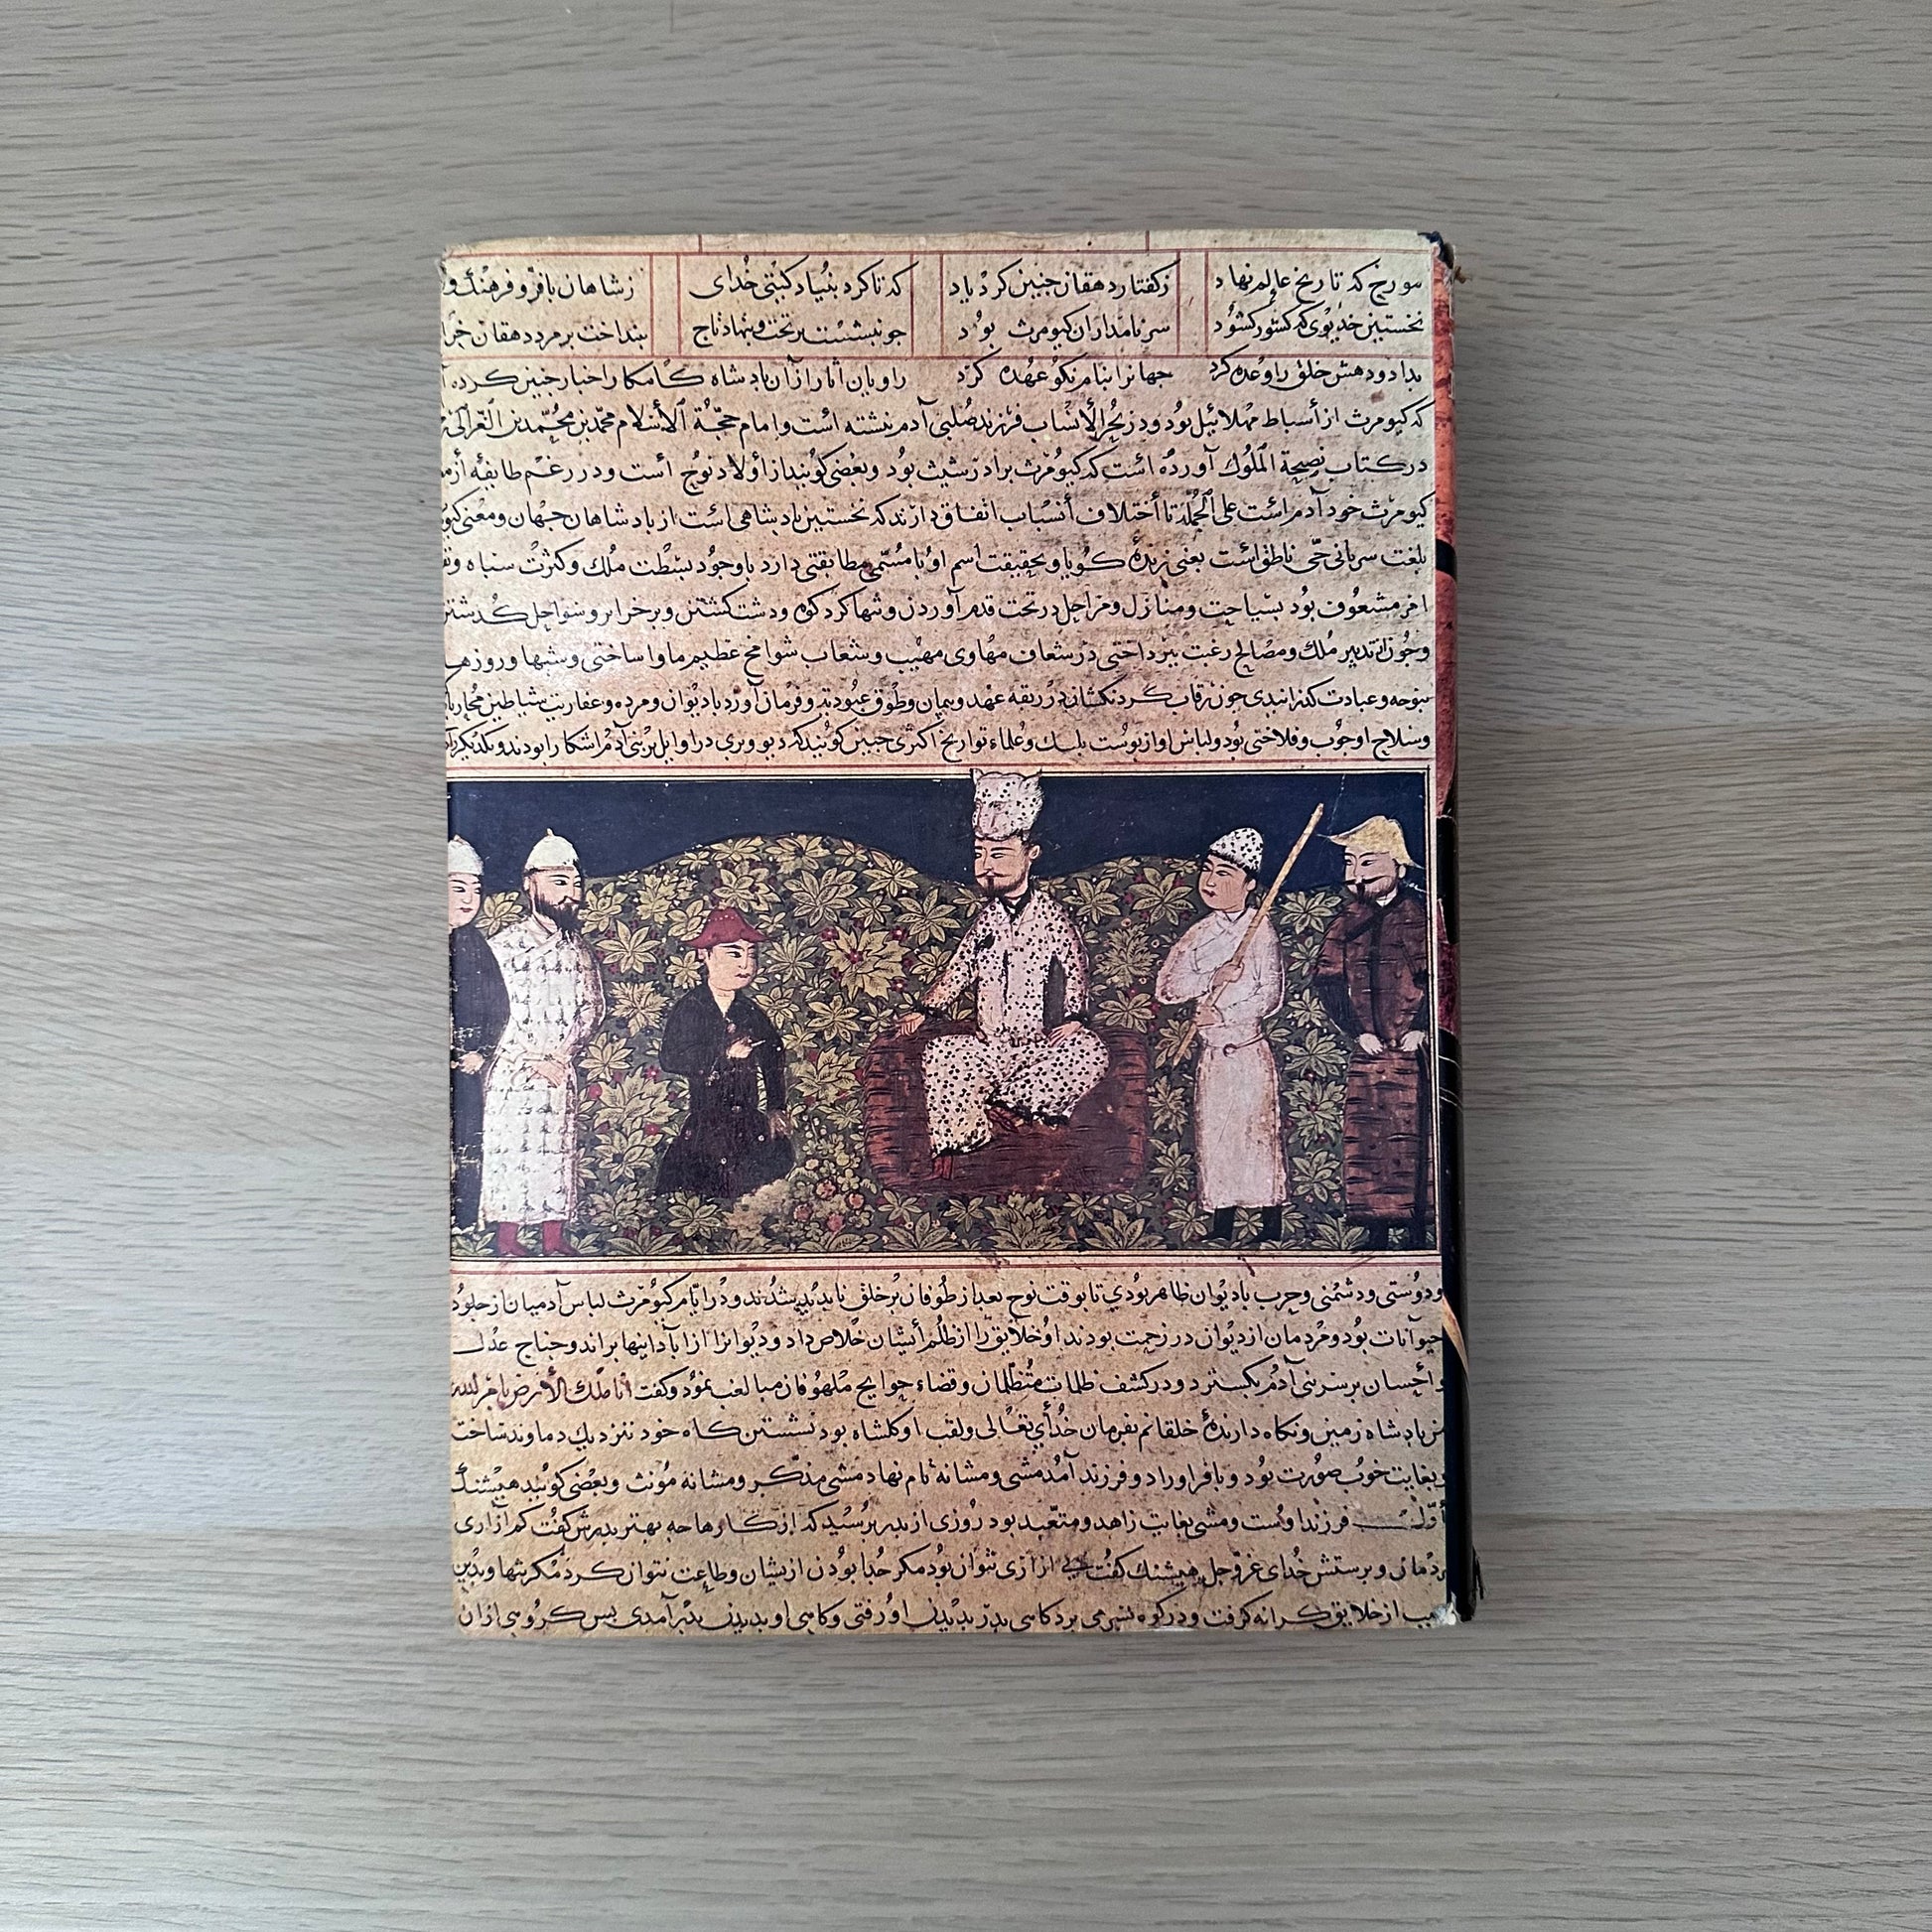 مورخ که تاریخ عالم نهاد زکفتار دهقان جنین کرد یاد که تا کرد بنیاد کیتی خدای زشاهان بافر و فرهنك و
نخستین خدیوی که کشور کشود سر نامداران کیومرث بود جو بنشست بر تخت و بنهاد تاج بینداخت بر مرد دهقان خرا
بداد و دهش خلق را وعده کرد جهانرا بنام نکو عهده کرد راویان اثار از آن پادشاه کامکار اخبار جنین کرده
که کیومرث از أسباط مهلائیل بود ودر بحر الأنساب فرزند صلبی آدم نبشته است وامام حجّة الأسلام محمّد بن محمّد بن الغزالی
در کتاب نصیحة الملوك آورده است که کیومرث برادر شیث بود وبعضی کویند از أولاد نوح است ودر رغم طایفه از
کیومرث خود آدم است علی الجمله تا أختلاف أنساب اتفاق دارند که نخستین پادشاهی است از پادشاهان جهان ومعنی
بلغت سریانی حّی ناطق است یعنی زندهٔ کویا وبحقیقت اسم او با مسمّی مطابقتی دارد باوجود بسطت ملك وکثرت سپاه
مشعوف بود بسیاحت ومنازل ومراحل در تحت قدم آوردن وتنها کرد کوه ودشت کشتن وبر جزایر وسواحل کذشتن
وجون از تدبیر ملك ومصالح رعیت بپرداختی در شعاف مهاوی مهیب وشعاب شوامخ عظیم ماوا ساختی وشبها وروزها
وعبادت کذرانیدی جون رقاب کردنکشان در ربقه عهد وپیمان وطوق عبودیت وفرمان آورد با دیوان ومرده وعفاریت وشیاطین
وسلاح او جوب وفلاخنی بود ولباس او از پوست پلنك وعلماء تواریخ اکثری جنین کویند که دیو وپری در اوایل بر بنی آدم اشکارا بودند
ودوستی ودشمنی وحرب با دیوان ظاهر بودی تا بوقت نوح بعد از طوفان بر خلق ناپدید شدند ودر ایّام کیومرث لباس آدمیان از جلود
حیوانات بود ومردمان از دیوان در زحمت بودند او خلایق را از ظلم أیشان خلاص داد ودیوانرا از آبادانیها براند وجناح عدل
وأحسان بر سر بنی آدم بکسترد ودر کشف ظلمات متظلمان وقضاء حوایج ملهوفان مبالغت نمود وکفت أنا ملك الأرض بامر الله
من پادشاه زمین ونکاه دارندهٔ خلقانم بفرمان خدأی تعالی ولقب او کلشاه بود نشستن کاه خود نزدیك دماوند ساخت
وبغایت خوب صورت بود وبافر اورا دو فرزند آمد مشی ومشانه نام نهاد مشی مذکر ومشانه مؤنث وبعضی کویند هیشنك
أوّل فرزند اوست ومشی بغایت زاهد ومتعّبد بود روزی از پدر پرسید که از کارها جه بهتر پدرش کفت کم آزاری
مردمان وپرستش خدای عزّ وجل هیشنك کفت ازاری نتوان بود مکر جدا بودن ازیشان وطاعت نتوان کرد مکر تنها وبدین
از خلایق کرانه کرفت ودر کوه بسر می برد کاهی پدر بدیدن او رفتی وکاهی او بدیدن پدر آمدی پس کروهی ازان